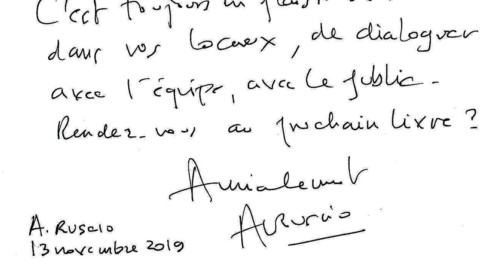 C'est toujours un plaisir
dans vos locaux, de dialoguer
avec l'équipe, avec le public.
Rendez-vous au prochain livre ?
Amicalement
A. Ruscio
13 novembre 2019
ARuscio